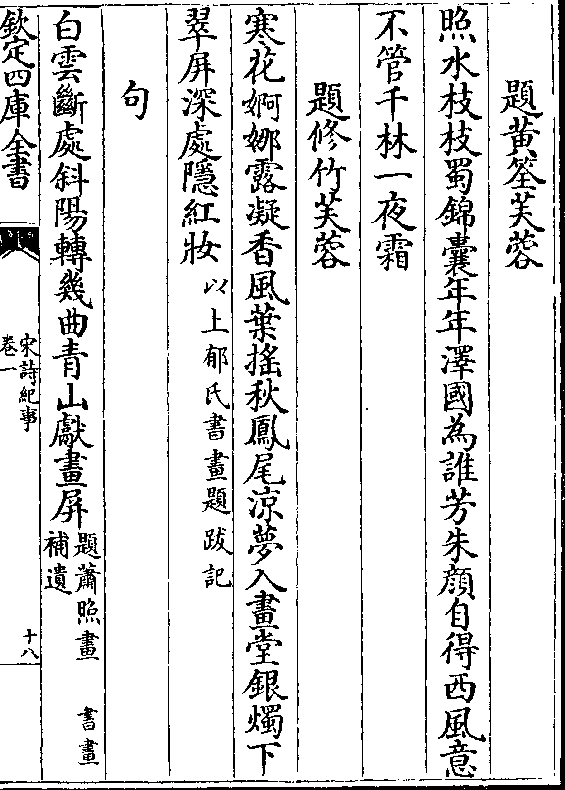 題黄筌芙蓉
照水枝枝蜀錦囊年年澤國為誰芳朱顔自得西風意
不管千林一夜霜
題修竹芙蓉
寒花婀娜露凝香風葉摇秋鳳尾涼夢入畫堂銀燭下
翠屏深處隱紅妝 以上郁氏書畫題跋記
句
白雲斷處斜陽轉幾曲青山獻畫屏
題蕭照畫 書畫
補遺
欽定四庫全書
宋詩紀事
卷一
十八